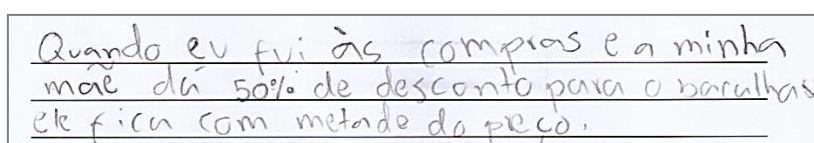 Quando eu fui às compras e a minha
mãe dá 50% de desconto para o bacalhas
ele fica com metade do preço.